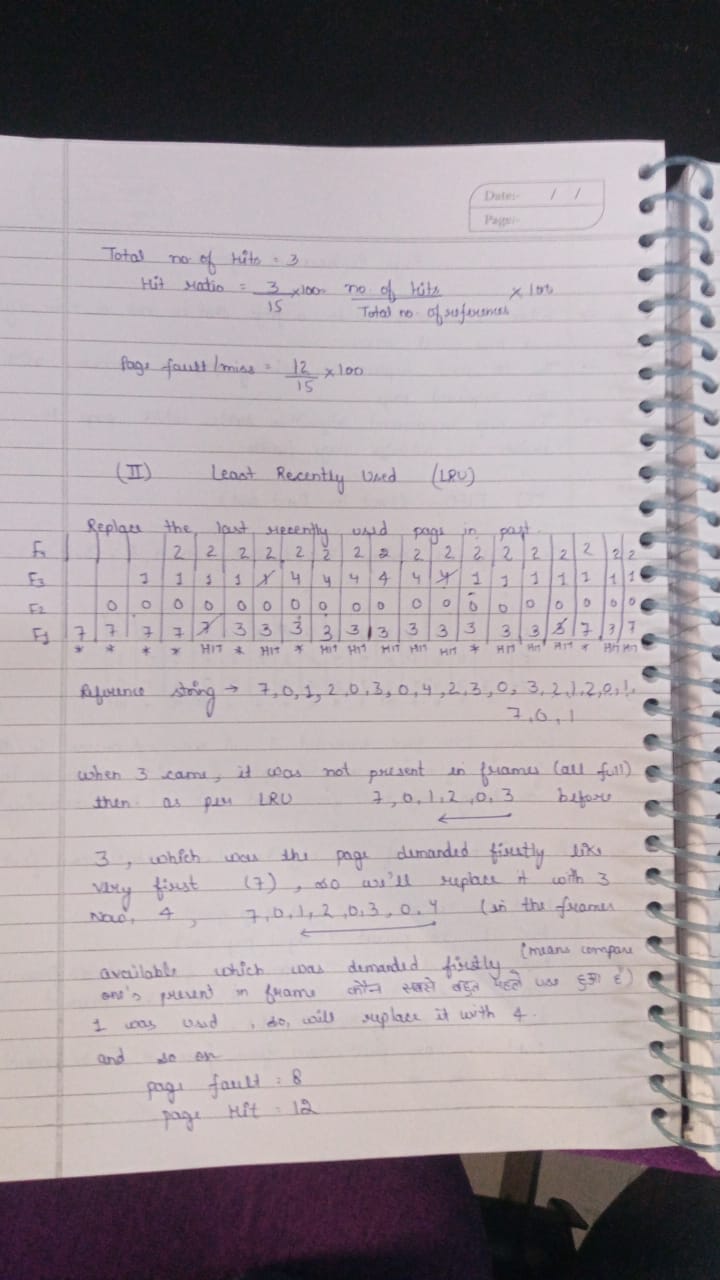 Date:- / /
Page:-
Total no. of Hits = 3
Hit ratio = 3/15 x100 no. of hits / Total no. of references x 100
Page fault/miss = 12/15 x100
(II) Least Recently Used (LRU)
Replaces the last recently used page in past.
F4 2 2 2 2 2 2 2 2 2 2 2 2 2 2 2 2 2
F3 1 1 1 1 1 4 4 4 4 4 4 1 1 1 1 1 1 1
F2 0 0 0 0 0 0 0 0 0 0 0 0 0 0 0 0 0 0 0
F1 7 7 7 7 7 3 3 3 3 3 3 3 3 3 3 3 3 7 7 7
* * * * HIT * HIT * HIT HIT HIT HIT HIT * HIT HIT HIT * HIT HIT
Reference string → 7,0,1,2,0,3,0,4,2,3,0,3,2,1,2,0,1,
7,0,1
when 3 came, it was not present in frames (all full)
then as per LRU 7,0,1,2,0,3 before
3, which was the page demanded firstly like
very first (7), so we'll replace it with 3
Now, 4, 7,0,1,2,0,3,0,4 (in the frames
available which was demanded firstly (means compare
one's present in frame कौन सबसे बहुत पहले use हुआ है)
1 was used, so, will replace it with 4.
and so on
page fault : 8
page Hit : 12